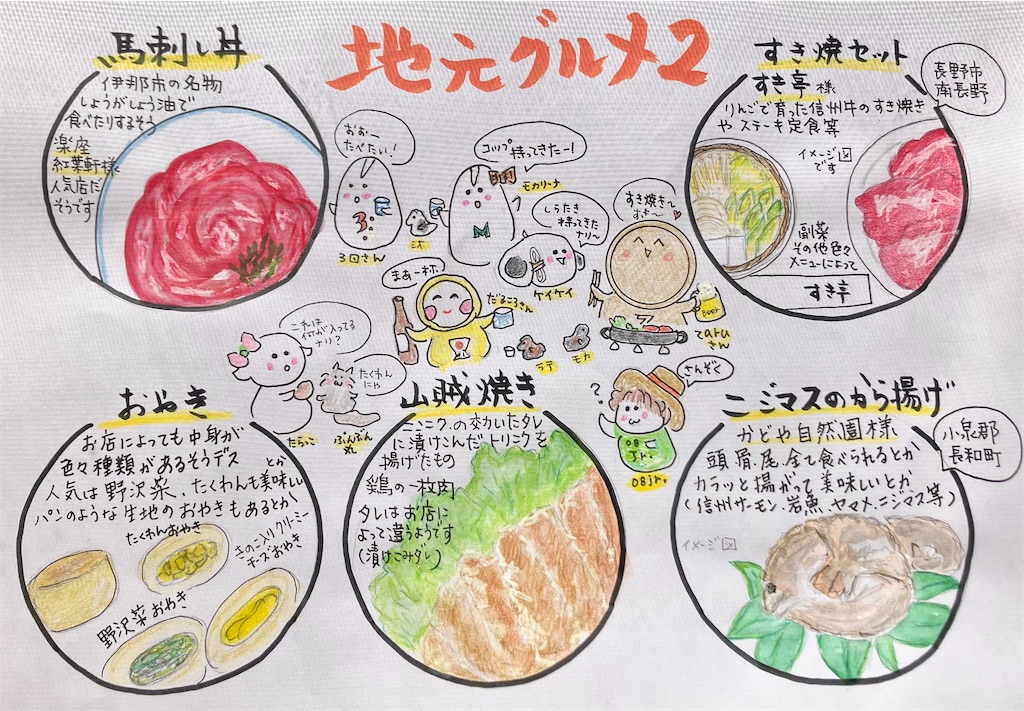 地元グルメ2
馬刺し丼
伊那市の名物
しょうがしょう油で
食べたりするそう
楽座
紅葉軒様
人気店だ
そうです
おぉー
たべたい!
3回さん
ニオ
コップ持ってきたー!
モカリーナ
M
しらたき
持ってきた
ナリ〜
ケイケイ
すき焼きで
すき〜
Beer
taruさん
まぁ一杯
だるころさん
ラテ
モカ
すき焼セット
すき亭様
長野市
南長野
りんごで育った信州牛のすき焼き
や ステーキ定食等
イメージ図
です
副菜
その他色々
メニューによって
すき亭
これは
何が入ってる
ナリ?
たらっこ
たくわん
にゃ
ぷんぷん丸
おやき
お店によっても中身が
色々種類があるそうデス
人気は野沢菜、たくわんも美味しいとか
パンのような生地のおやきもあるとか
たくわんおやき
きのこ入りクリーミー
チーズおやき
野沢菜おやき
山賊焼き
ニンニクの効いたタレ
に漬けこんだトリニクを
揚げたもの
鶏の一枚肉
タレはお店に
よって違うようです
(漬けこみダレ)
?
さんぞく
08
Jr.
083r.
ニジマスのから揚げ
かどや自然園様
小県郡
長和町
頭、骨、尾、全て食べられるとか
カラッと揚がって美味しいとか
(信州サーモン、岩魚、ヤマメ、ニジマス等)
イメージ図